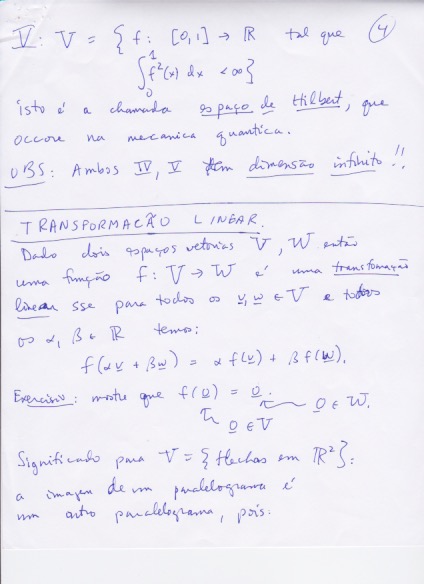 V: V = { f: [0,1] → ℝ tal que (4)
∫₀¹ f²(x) dx < ∞}
isto é a chamada espaço de Hilbert, que
occore na mecanica quantica.
OBS: Ambos IV, V tem dimensão infinito!!
TRANSFORMAÇÃO LINEAR.
Dado dois espaços vetorias V, W então
uma função f: V → W é uma transformação
linear sse para todos os v, w ∈ V e todos
os α, β ∈ ℝ temos:
f(αv + βw) = αf(v) + βf(w).
Exercisio: mostre que f(0) = 0.
0 ∈ W.
0 ∈ V
Significado para V = {flechas em ℝ²}:
a imagem de um paralelograma é
um outro paralelograma, pois: